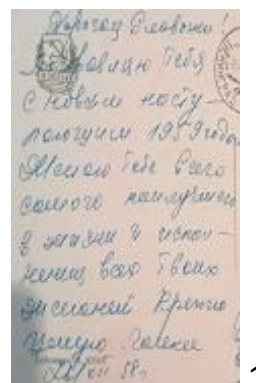 Дорогая Славочка!
Поздравляю Тебя
с Новым насту-
пающим 1959 годом
Желаю Тебе всего
самого наилучшего
в жизни и испол-
нения всех Твоих
желаний Крепко
целую Галека
XII 58 г.
1